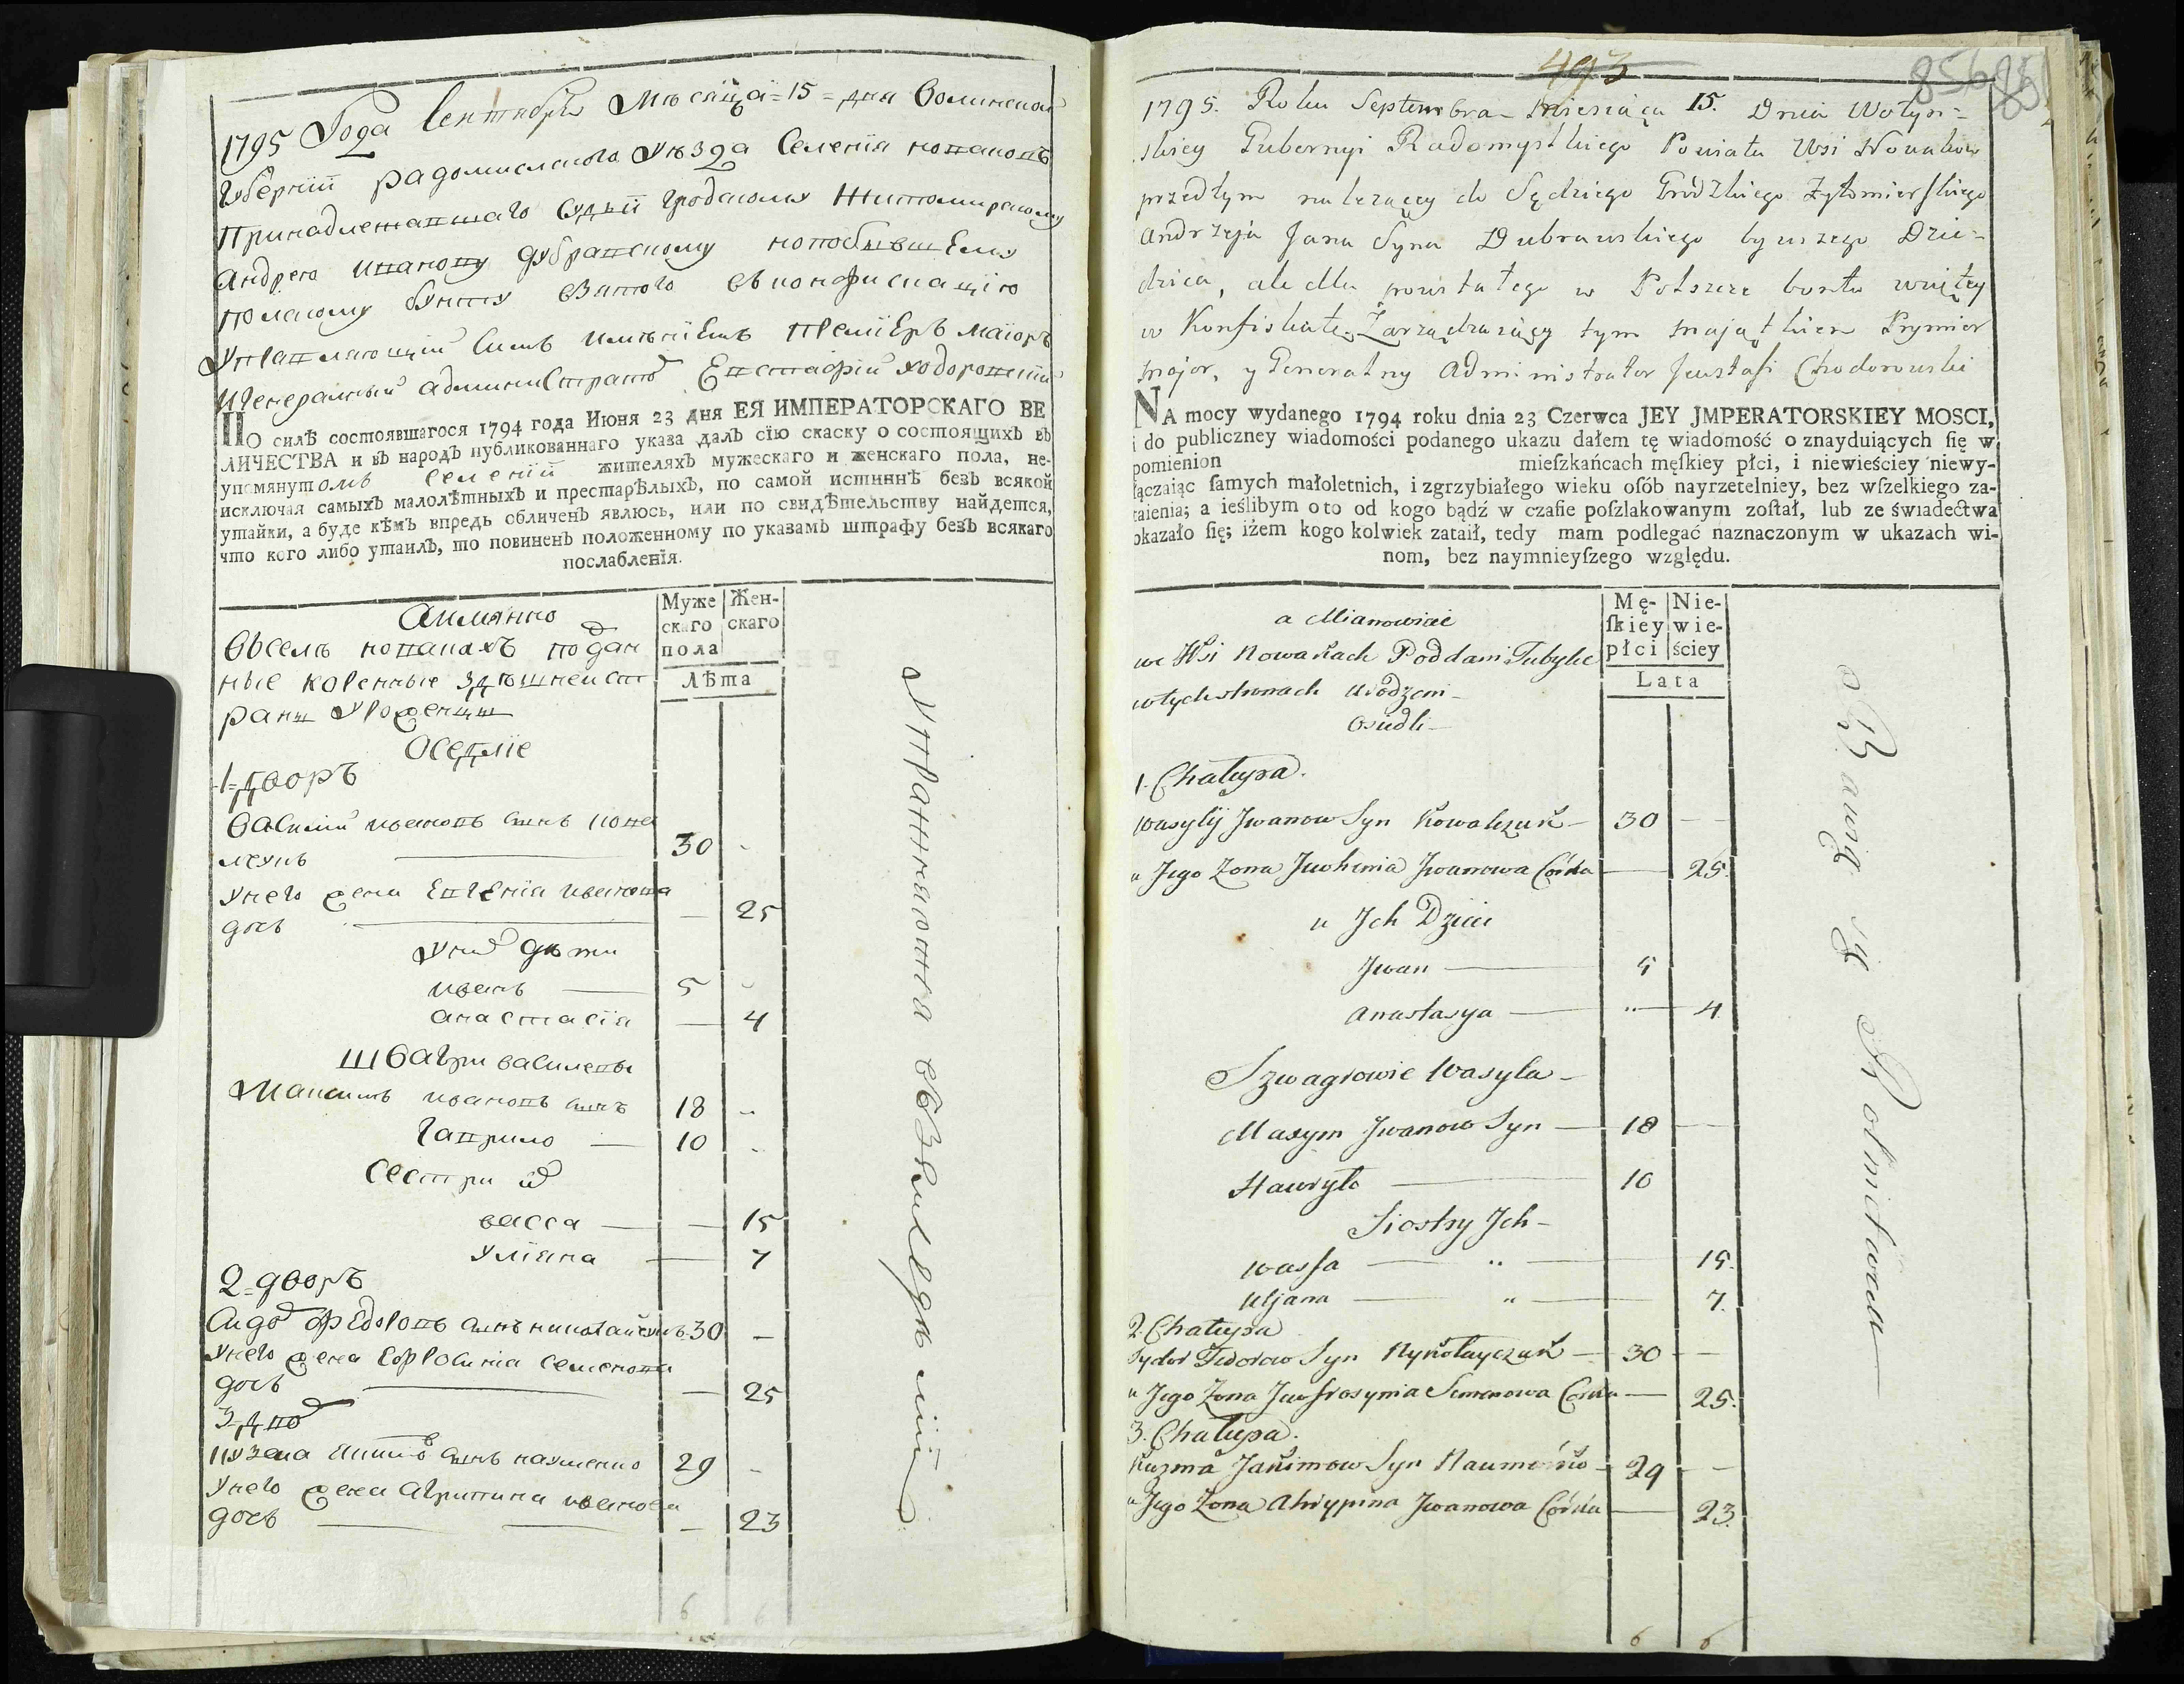 1795 Года Сентября Мѣсяца = 15 = дня Волинской
Губернїи радомисленого Уѣзда Селенїя новаковъ
Принадлежавшаго Судьи гродскому Житомирскому
Андрею Иванову дубравскому по бывшему
Полскому бунту взятого въ конфискацїю
Управляющїй Симъ имѣнїемъ Премїеръ маїоръ
Игенералный администраторъ Евстафїй ходоровскїй
ПО силѣ состоявшагося 1794 года Июня 23 дня ЕЯ ИМПЕРАТОРСКАГО ВЕ
ЛИЧЕСТВА и въ народъ публикованнаго указа далъ сїю скаску о состоящихъ въ
упомянутомъ селенїи жителяхъ мужескаго и женскаго пола, не-
исключая самыхъ малолѣтныхъ и престарѣлыхъ, по самой истиннѣ безъ всякой
утайки, а буде кѣмъ впредь обличенъ явлюсь, или по свидѣтельству найдется,
что кого либо утаилъ, то повиненъ положенному по указамъ штрафу безъ всякаго
послабленїя.
Аимянно
Муже Жен-
скаго скаго
пола
Лѣта
Въселѣ новакахъ подан
ные коренные здѣшнеи ст
раны Уроженцы
Оседлїе
1=дворъ
Василий ивановъ сынъ кова
лчукъ — 30 -
Унего жена Евгенїя иванова
дочь — — 25
Уних дѣти
иванъ — 5 -
анастасїя — 4
Швагри василевы
Максимъ ивановъ сынъ 18 -
Гаврило — 10 -
Сестри их
васса — — 15
Улїяна — 7
2=дворъ
Сидор федоровъ сынъ николайчукъ 30 -
Унего жена Ефросиния семенова
дочь — — 25
3=дво
кузма якимов сынъ науменко 29 -
Унего жена агрипина иванова
дочь — — 23
6 6
Управляющїй
493
856
1795. Roku Septembra Miesiąca 15. Dnia Wołyn=
skiey Gubernyi Radomyslskiego Powiatu Wsi Nowaków
przedtym należącey do Sędziego Grodzkiego Żytomierskiego
Andrzeja Jana Syna Dubrawskiego bywszego Dzie=
dzica, ale dla powstałego w Polszcze buntu wziętey
w Konfiskatę Zarządzaiący tym maiątkiem Prymier
Major, y Generalny Administrator Jewstafi Chodorowski
NA mocy wydanego 1794 roku dnia 23 Czerwca JEY JMPERATORSKIEY MOSCI,
i do publiczney wiadomości podanego ukazu dałem tę wiadomość o znayduiących ſię w
pomienion mieſzkańcach męſkiey płci, i niewieściey niewy-
łączaiąc ſamych małoletnich, i zgrzybiałego wieku oſób nayrzetelniey, bez wſzelkiego za-
taienia; a ieślibym oto od kogo bądź w czaſie poſzlakowanym zoſtał, lub ze świadectwa
okazało ſię; iżem kogo kolwiek zataił, tedy mam podlegać naznaczonym w ukazach wi-
nom, bez naymnieyſzego względu.
a Mianowicie
Mę- Nie-
ſkiey wie-
płci ściey
Lata
we Wsi Nowakach Poddani Tubylce
w tych stronach urodzeni
Osiedli
1. Chałupa.
Wasylij Jwanow Syn Kowalczuk — 30 —
u Jego Zona Jewhenia Jwanowa Córka — 25.
u Jch Dzieci
Jwan — 5
Anastasya — " — 4
Szwagrowie Wasyla
Maxym Jwanow Syn — 18 —
Hawryło — 10
Siostry Jch
Wassa — " — 15.
Uljana — " — 7.
2. Chałupa
Sydor Fedorow Syn Nykołayczuk — 30 —
u Jego Zona Jewfrosynia Semenowa Córka — 25.
3. Chałupa.
Kuzma Jakimow Syn Naumenko — 29 —
u Jego Zona Ahrypina Jwanowa Córka — 23.
6 6